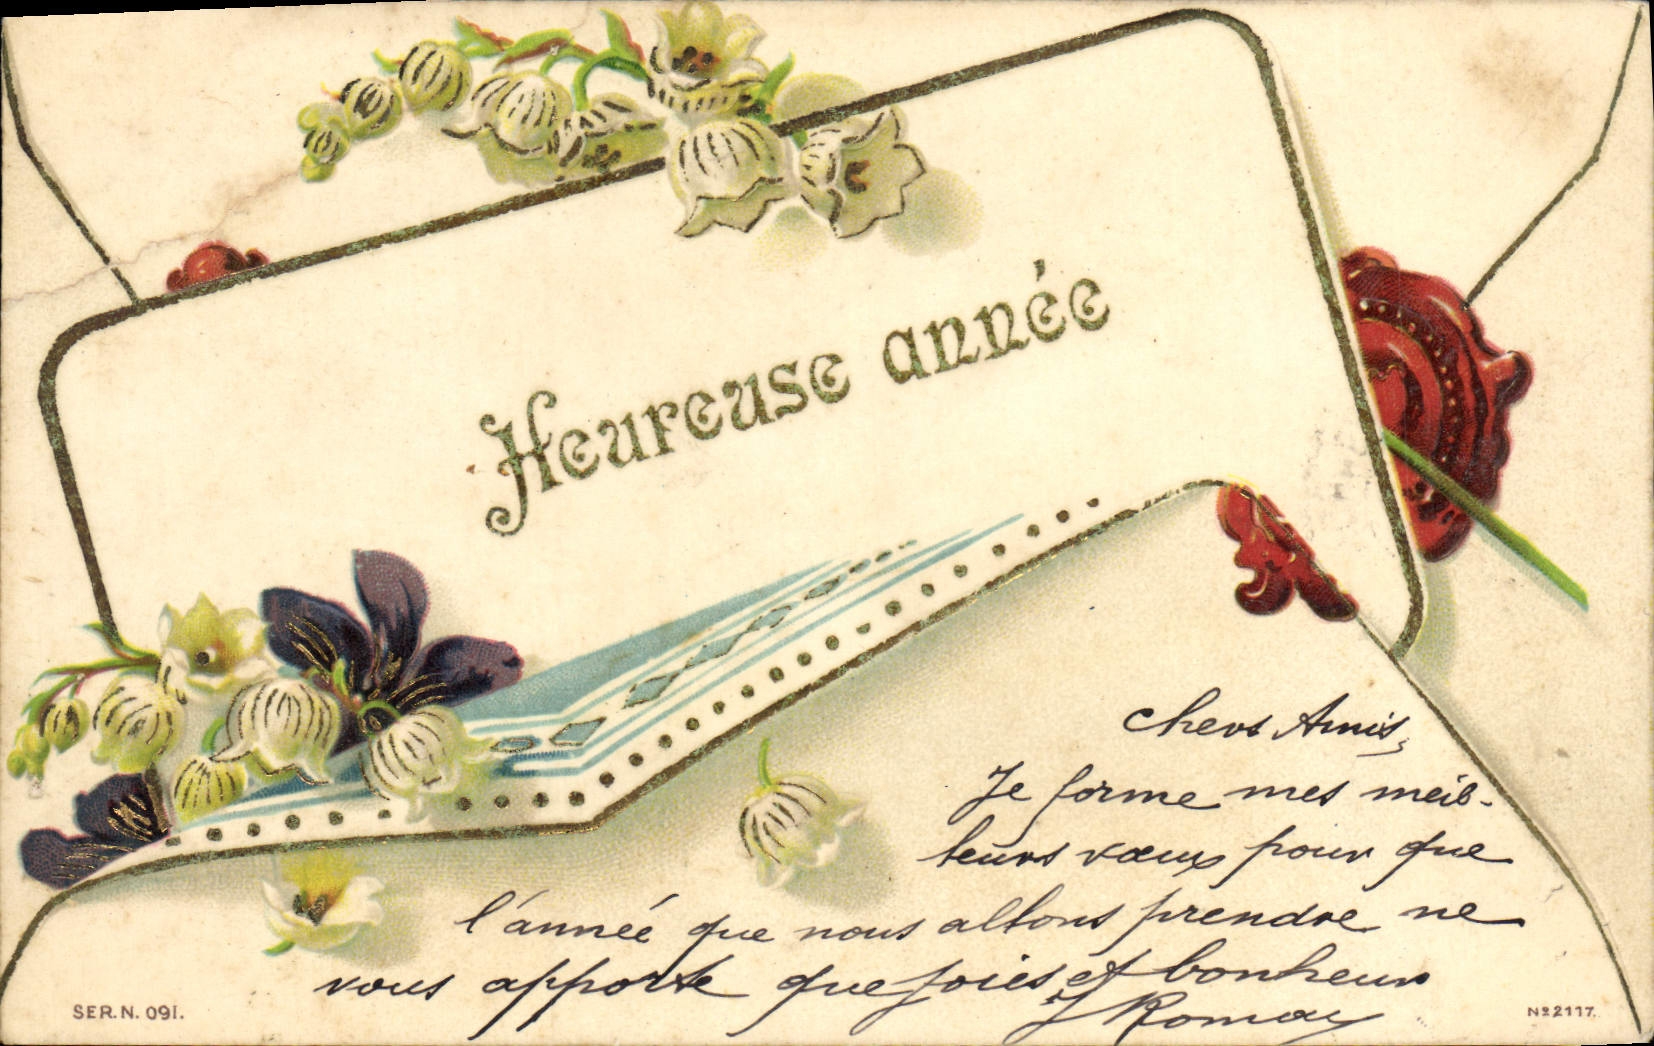 Heureuse année
chers Amis,
Je forme mes meil-
leurs vœux pour que
l'année que nous allons prendre ne
vous apporte que joies et bonheur
J Romay
SER. N. 091.
Nº 2117.